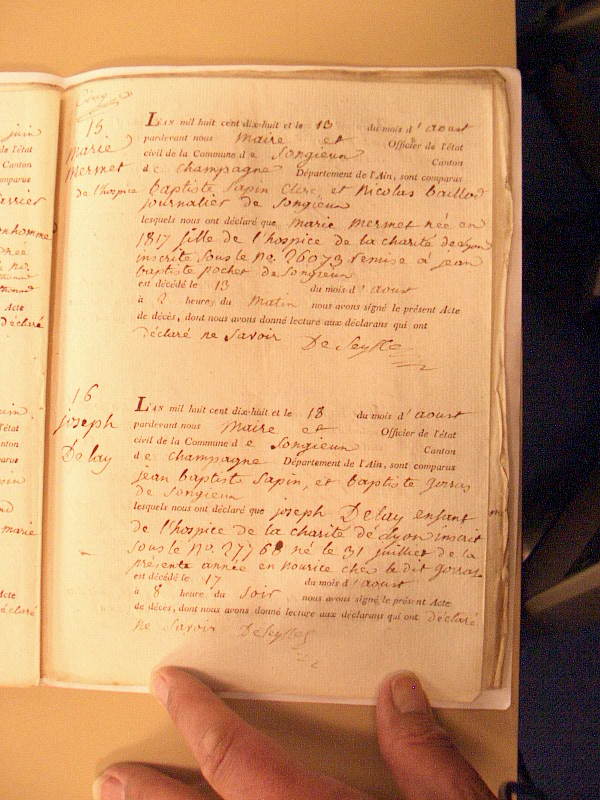 15
Marie
Mermet
de l'hospice
L'AN mil huit cent dix-huit et le 13 du mois d'aoust
pardevant nous maire et Officier de l'état
civil de la Commune de Songieux Canton
de champagne Département de l'Ain, sont comparus
Baptiste Sapin Clerc, et Nicolas Baillod
journalier de Songieux
lesquels nous ont déclaré que marie mermet née en
1817 fille de l'hospice de la charité de Lyon
inscrite sous le no. 26073 remise à jean
baptiste pochet de Songieux
est décédé le 13 du mois d'aoust
à 2 heures du matin nous avons signé le présent Acte
de décès, dont nous avons donné lecture aux déclarans qui ont
déclaré ne savoir DeSeyssel
16
joseph
Delay
L'AN mil huit cent dix-huit et le 18 du mois d'aoust
pardevant nous Maire et Officier de l'état
civil de la Commune de Songieux Canton
de champagne Département de l'Ain, sont comparus
jean Baptiste Sapin, et Baptiste
de Songieux
lesquels nous ont déclaré que joseph Delay enfant
de l'hospice de la charité de Lyon inscrit
sous le no. 27768 né le 31 juillet de la
présente année en nourice chés le dit
est décédé le 17 du mois d'aoust
à 8 heure du soir nous avons signé le présent Acte
de décès, dont nous avons donné lecture aux déclarans qui ont déclaré
ne savoir DeSeyssel